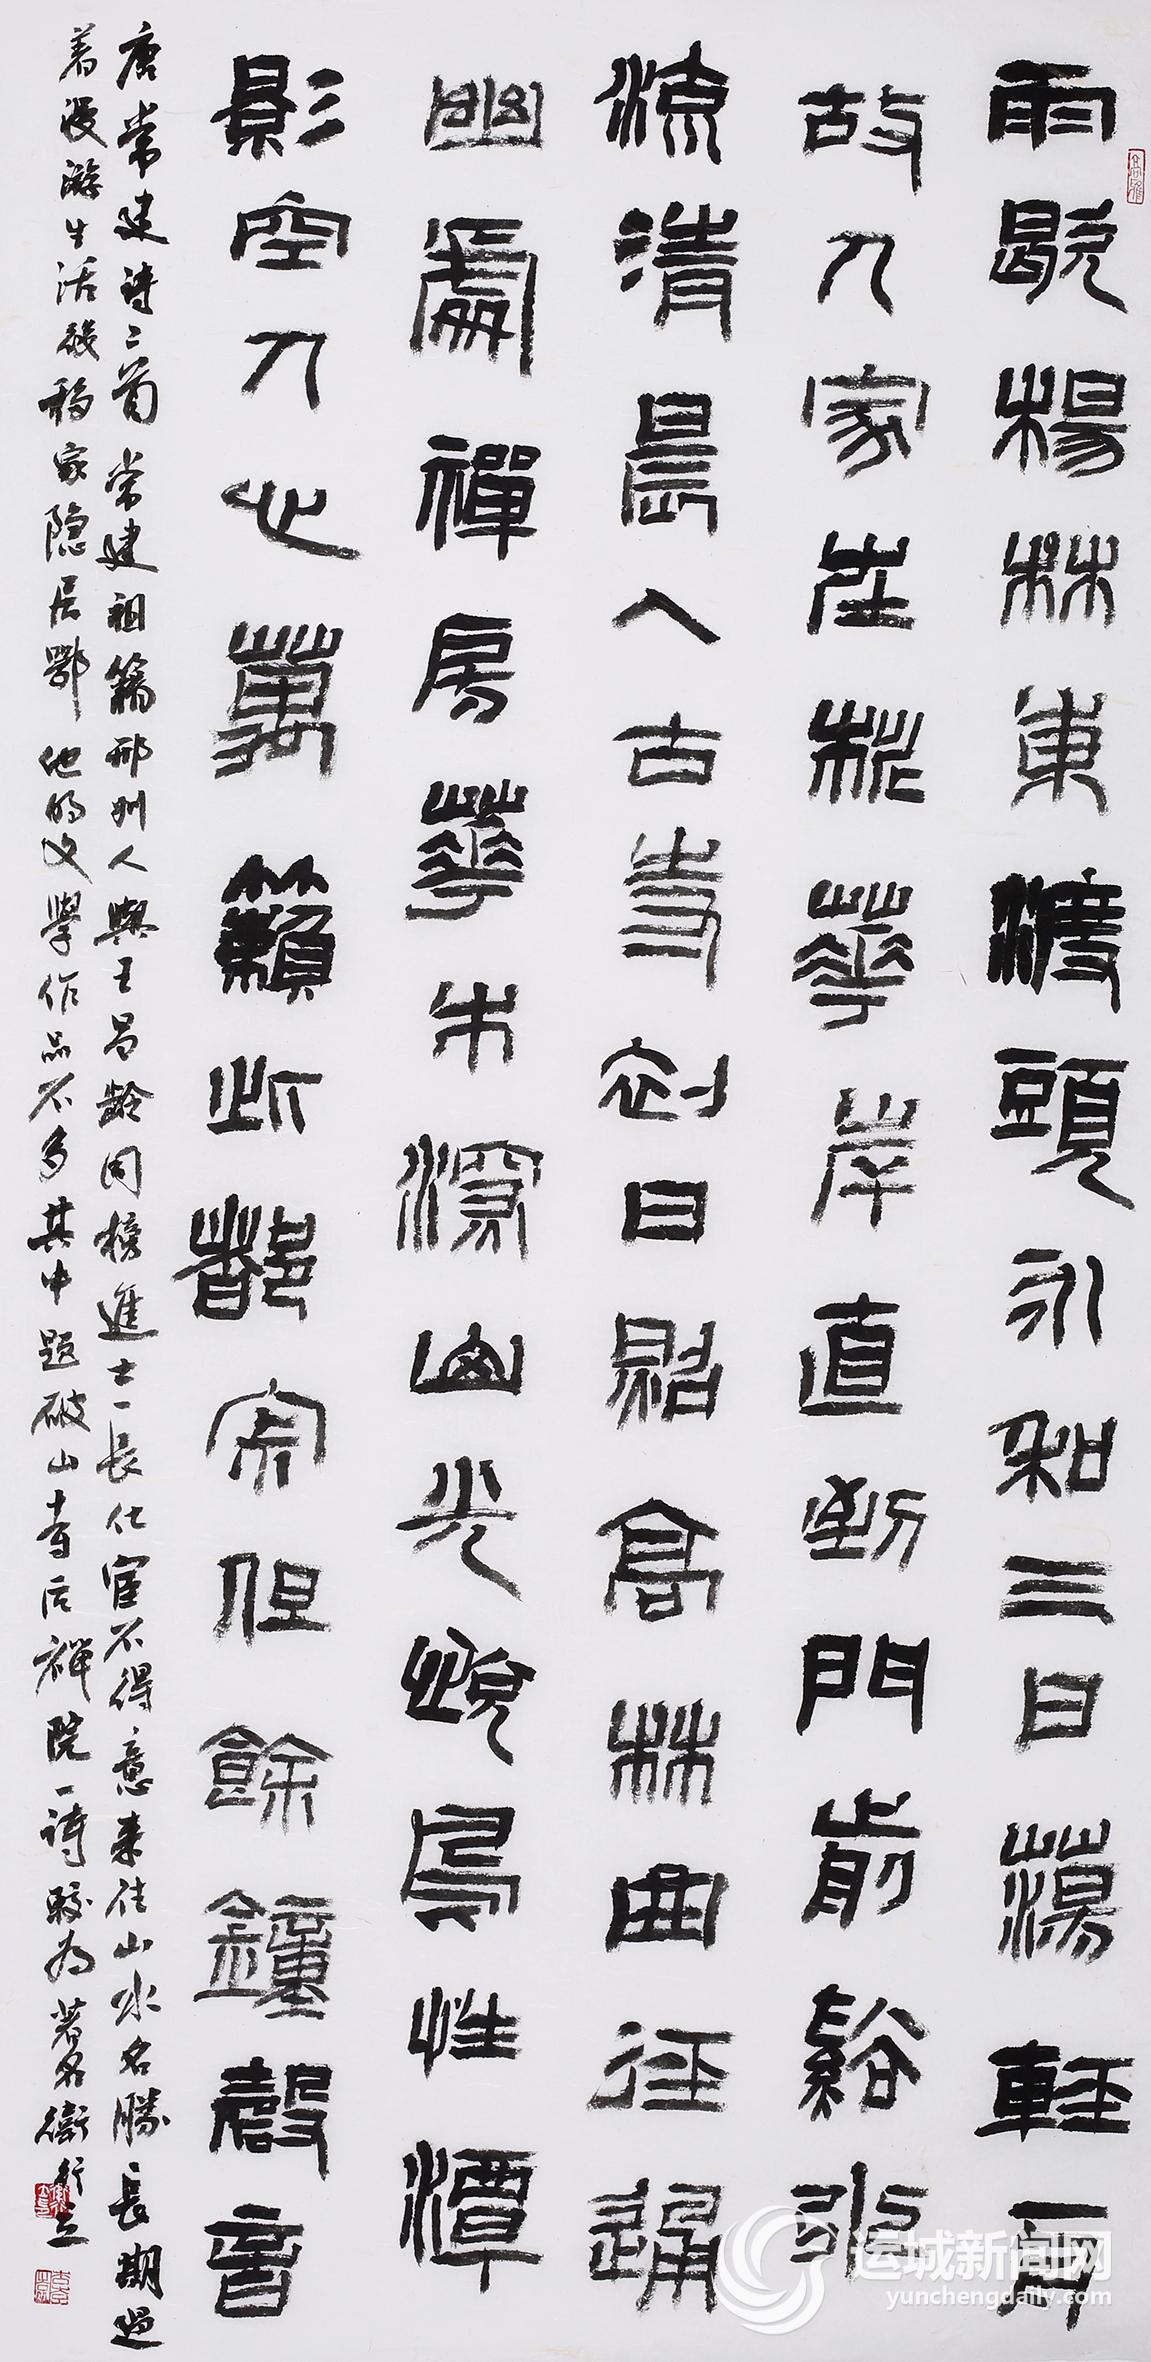 雨歇楊林東渡頭永和三日蕩輕舟
故人家在桃華岸直到門前谿水
流清晨入古寺初日照高林曲徑通
幽處禪房華木深山光悅鳥性潭
影空人心萬籟此都寂但餘鐘磬音
唐常建诗二首常建祖籍邢州人與王昌龄同榜進士一長仕宦不得意来往山水名勝長期過
着漫游生活後移家隐居鄂他的文學作品不多其中题破山寺后禅院一诗较为著名衛
运城新闻网
yunchengdaily.com